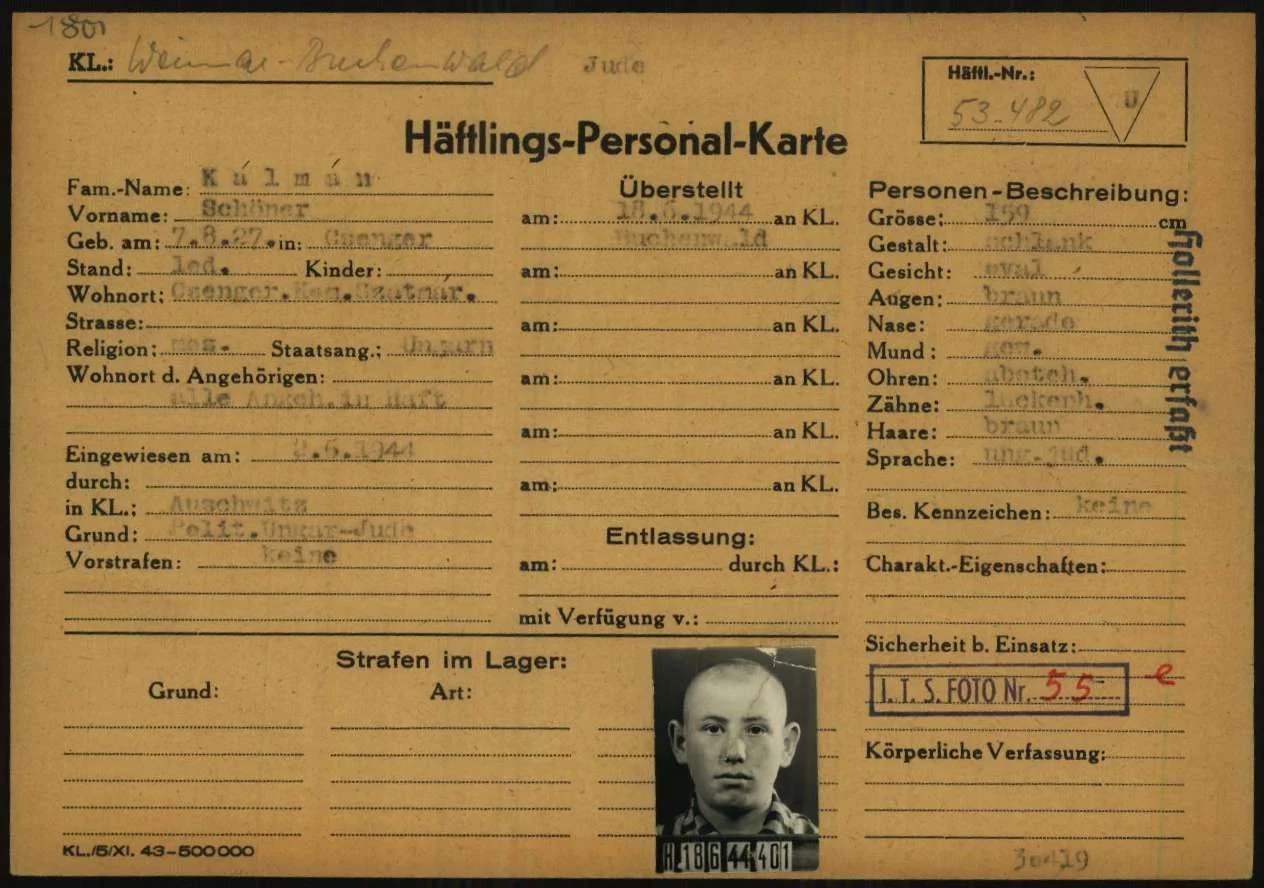 1801
KL.: Weimar-Buchenwald Jude
Häftl.-Nr.:
53.482 U
Häftlings-Personal-Karte
Fam.-Name: Kálmán
Vorname: Schöner
Geb. am: 7.8.27. in: Csenger
Stand: led. Kinder:
Wohnort: Csenger.Kom.Szatmár.
Strasse:
Religion: mos. Staatsang.: Ungarn
Wohnort d. Angehörigen:
Alle Angeh.in Haft
Eingewiesen am: 2.6.1944
durch:
in KL.: Auschwitz
Grund: Polit.Ungar-Jude
Vorstrafen: keine
Überstellt
am: 18.6.1944 an KL.
Buchenwald
am: an KL.
am: an KL.
am: an KL.
am: an KL.
am: an KL.
Entlassung:
am: durch KL.:
mit Verfügung v.:
Personen-Beschreibung:
Grösse: 159 cm
Gestalt: schlank
Gesicht: oval
Augen: braun
Nase: gerade
Mund: gew.
Ohren: absteh.
Zähne: lückenh.
Haare: braun
Sprache: ung.jud.
Bes. Kennzeichen: keine
Charakt.-Eigenschaften:
Sicherheit b. Einsatz:
I. T. S. FOTO Nr. 55 e
Körperliche Verfassung:
30419
Hollerith erfaßt
Strafen im Lager:
Grund: Art:
H 18 6 44 401
KL./5/XI. 43-500000